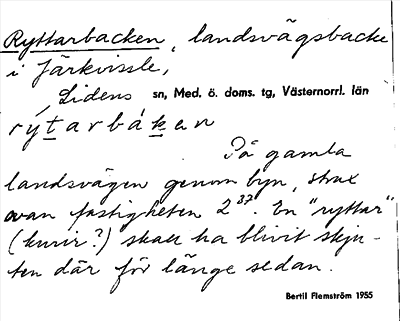 Ryttarbacken, landsvägsbacke
i Järkvissle,
Lidens sn, Med. ö. doms. tg, Västernorrl. län
rýtarbákan
På gamla
landsvägen genom byn, strax
ovan fastigheten 2³⁷. En "ryttar"
(kurir?) skall ha blivit skju-
ten där för länge sedan.
Bertil Flemström 1955